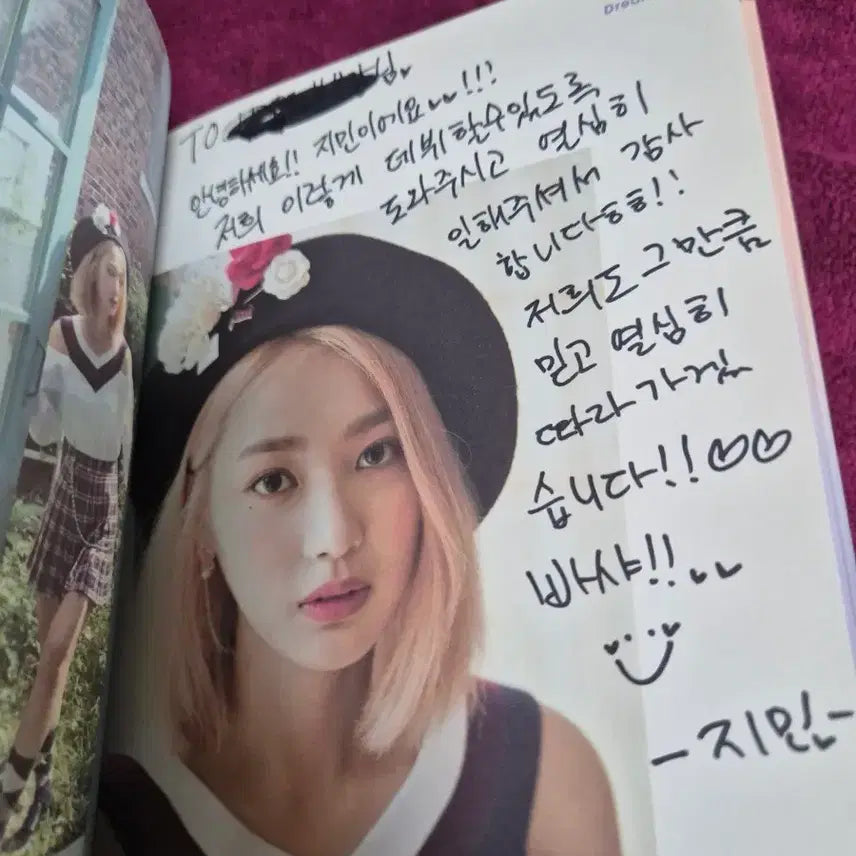 Drea
TO 님
안녕하세요!! 지민이에요!!!
저희 이렇게 데뷔할수있도록
도와주시고 열심히
일해주셔서 감사
합니다ㅎㅎ!!
저희도 그만큼
믿고 열심히
따라가겠
습니다!!♡♡
빠샤!!
-지민-